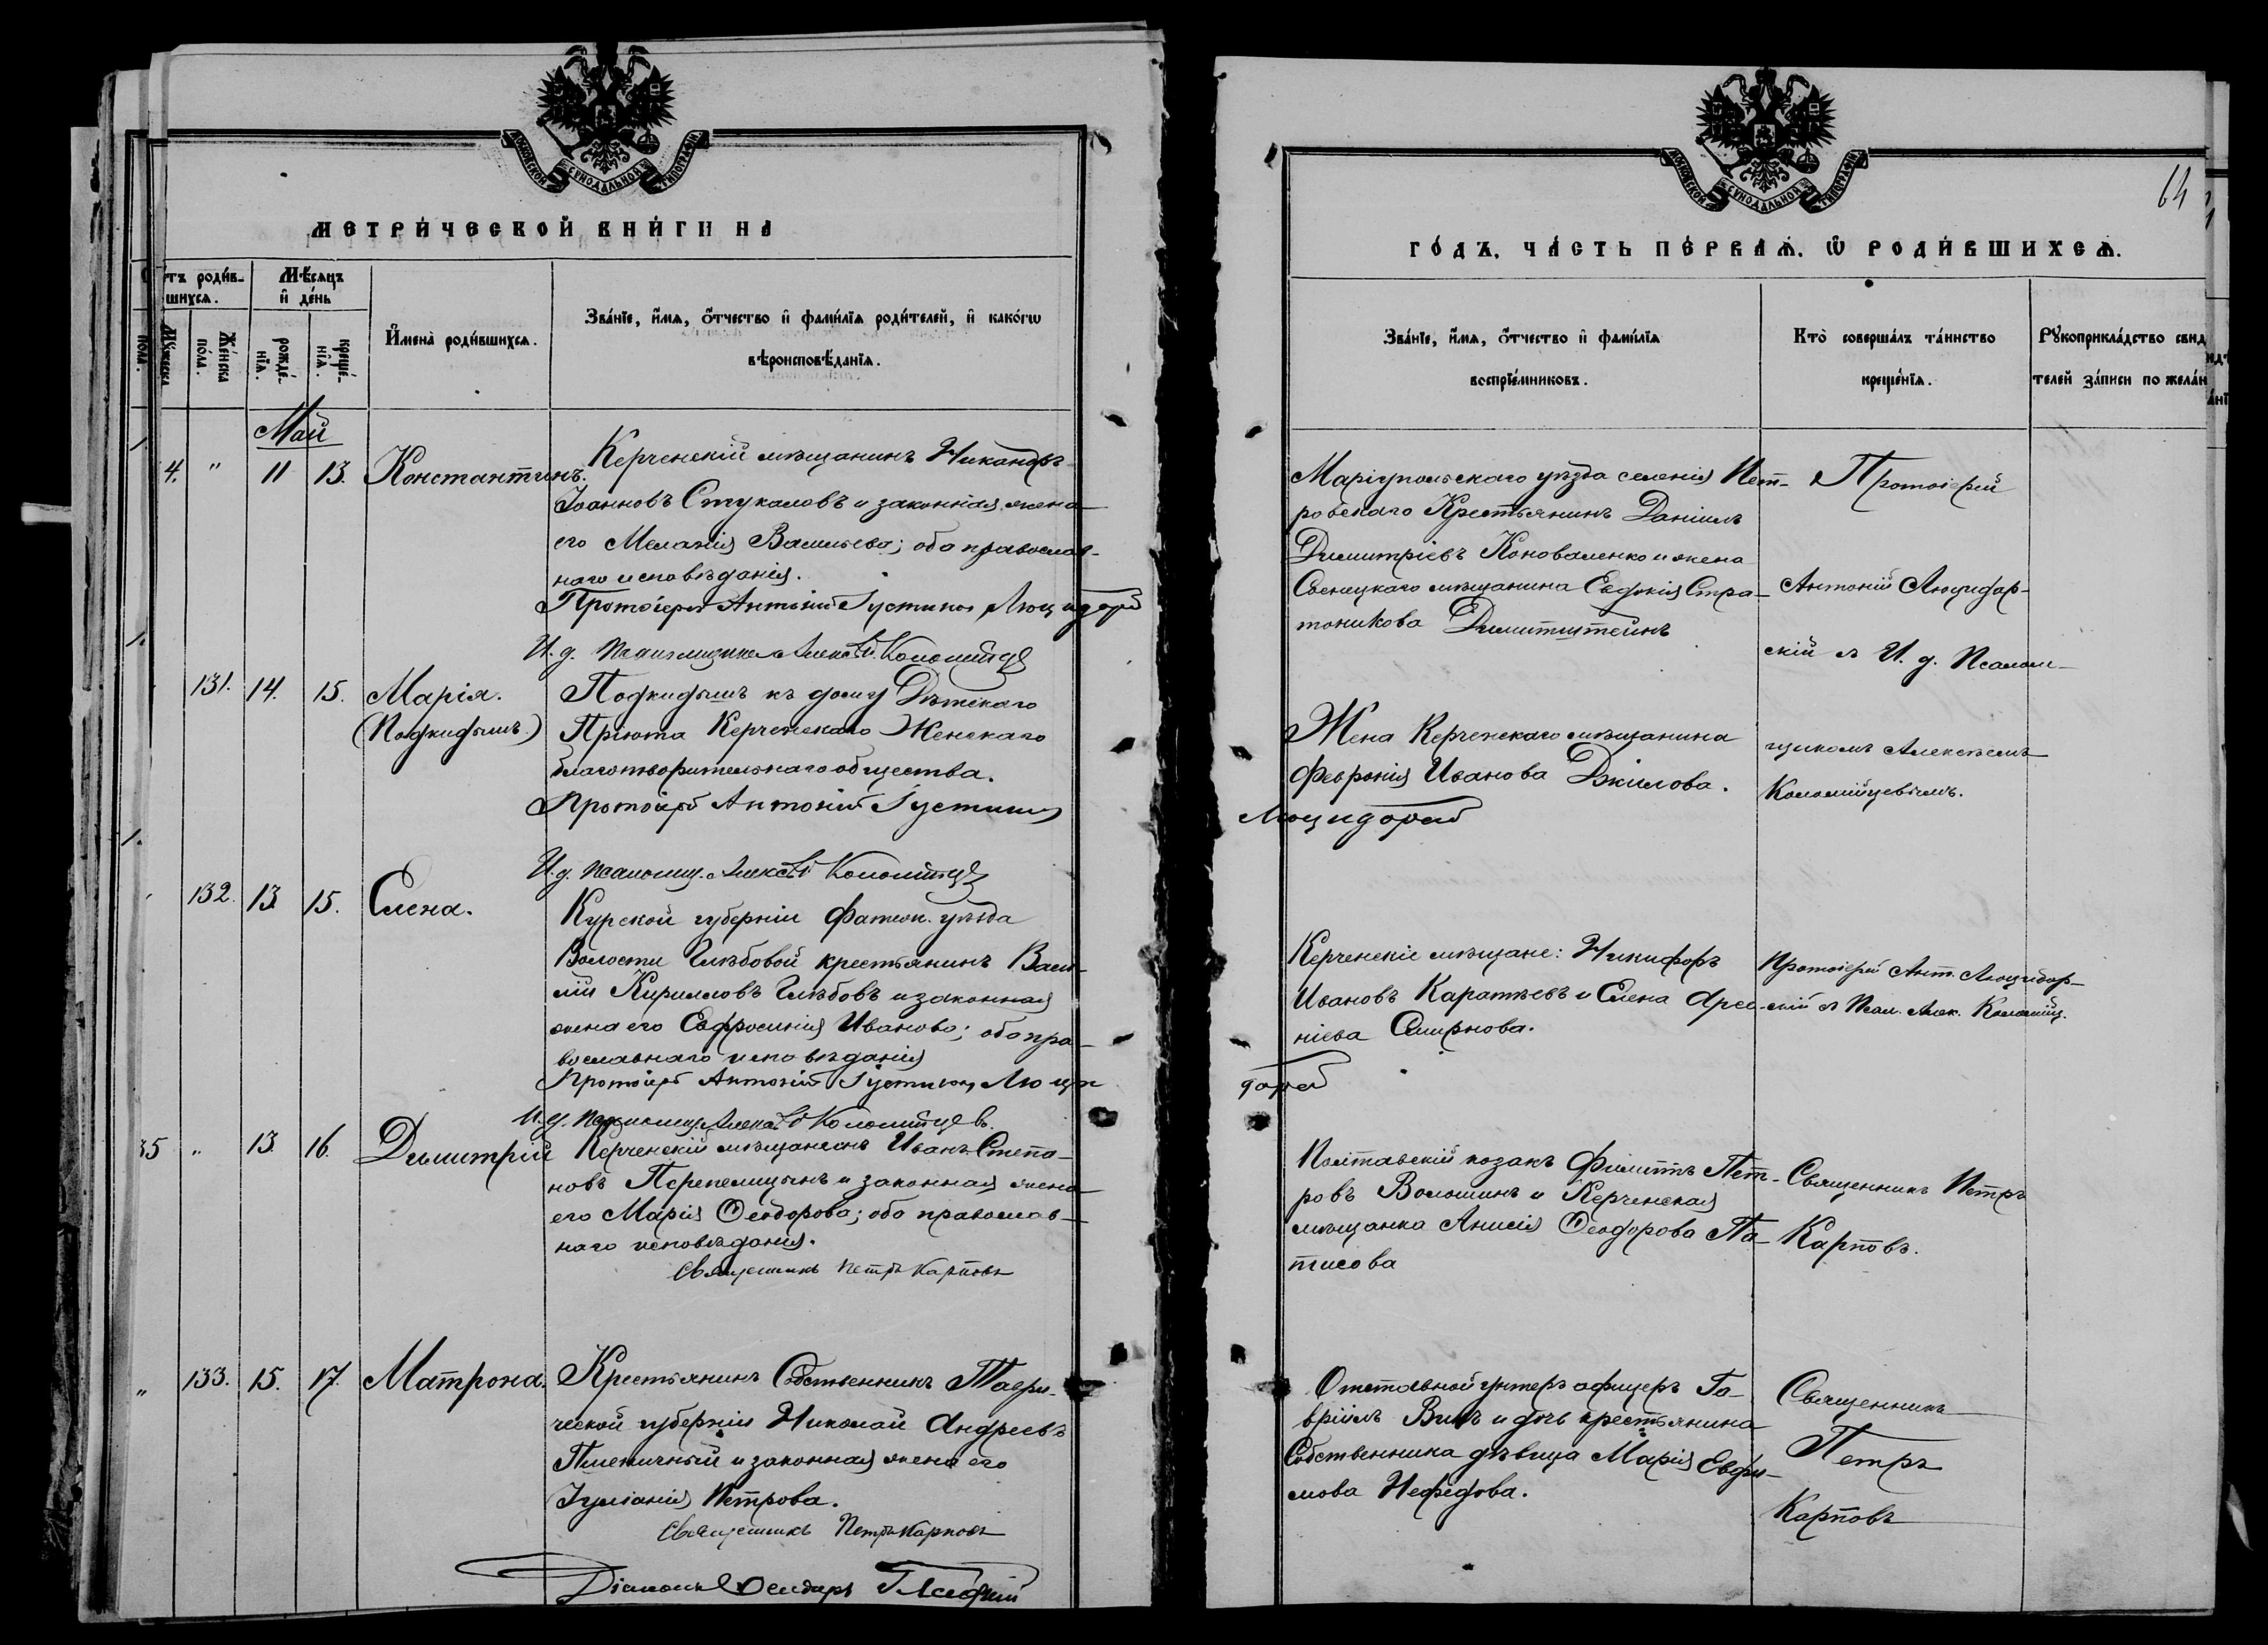 МОСКОВСКОЙ СУНОДАЛЬНОЙ ТИПОГРАФІИ
МЕТРИ́ЧЕСКОЙ КНИ́ГИ НА
родив-
шихся.
Мѣсяцъ
и день
Мужеска
пола.
Женска
пола.
рожде-
нія.
креще-
нія.
Имена родившихся.
Званіе, имя, отчество и фамилія родителей, и какогѡ
вѣроисповѣданія.
Май
4. " 11 13. Константинъ.
Керченскій мѣщанинъ Никандръ
Іоанновъ Стукаловъ и законная жена
его Меланія Васильева; оба православ-
наго исповѣданія.
Протоіерей Антоній
И. д. Коломійцевъ
131. 14. 15. Марія.
(Подкидышъ)
Подкидышъ къ дому Дѣтскаго
Пріюта Керченскаго Женскаго
благотворительнаго общества.
Протоіерей Антоній
И. д. псаломщ. Алексѣй Коломійцевъ
132. 13. 15. Елена.
Курской губерніи Фатеж. уѣзда
Волости Глѣбовой крестьянинъ Васи-
лій Кирилловъ Глѣбовъ и законная
жена его Евфросинія Иванова; оба пра-
вославнаго исповѣданія
Протоіерей Антоній
И. д. псаломщ. Алексѣй Коломійцевъ.
35 " 13. 16. Димитрій
Керченскій мѣщанинъ Иванъ Степа-
новъ Перепелицынъ и законная жена
его Марія Ѳеодорова; оба православ-
наго исповѣданія.
Священникъ Петръ Карповъ
" 133. 15. 17. Матрона.
Крестьянинъ Собственникъ Таври-
ческой губерніи Николай Андреевъ
Пшеничный и законная жена его
Іуліанія Петрова.
Священникъ Петръ Карповъ
Діаконъ
МОСКОВСКОЙ СУНОДАЛЬНОЙ ТИПОГРАФІИ
64
ГО́ДЪ, ЧА́СТЬ ПЕ́РВАѦ, Ѡ РОДИ́ВШИХСѦ.
Званіе, имя, отчество и фамилія
воспріемниковъ.
Кто совершалъ таинство
крещенія.
Рукоприкладство свид
телей записи по желан
Маріупольскаго уѣзда селенія Пет-
ровскаго Крестьянинъ Даніилъ
Димитріевъ Коноваленко и жена
мѣщанина Евдокія Стра-
тоникова
Протоіерей
Антоній Люцидар-
скій съ И. д. Псалом-
щикомъ Алексѣемъ
Коломійцевымъ.
Жена Керченскаго мѣщанина
Февронія Иванова Джилова.
Керченскіе мѣщане: Никифоръ
Ивановъ Каратѣевъ и Елена Арсе-
ніева Смирнова.
Протоіерей Ант. Люцидар-
скій съ Псал. Алек. Коломійц.
Полтавскій козакъ Филиппъ Пет-
ровъ Волошинъ и Керченская
мѣщанка Анисія Ѳеодорова Па-
тисова
Священникъ Петръ
Карповъ.
Отставной унтеръ офицеръ Га-
вріилъ и дочь крестьянина
Собственника дѣвица Марія Евфи-
мова Нефедова.
Священникъ
Петръ
Карповъ